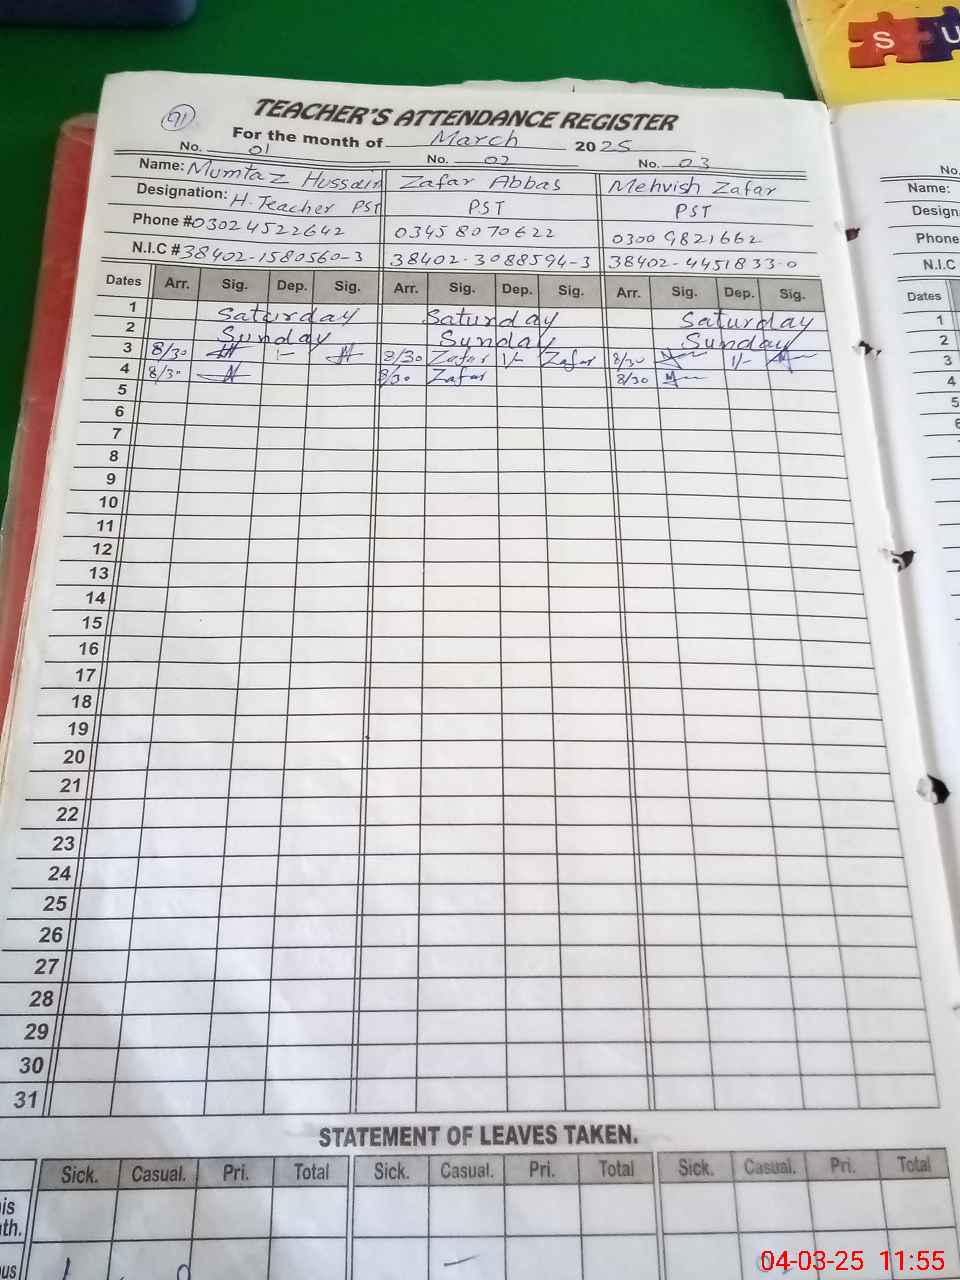 S U
91
TEACHER'S ATTENDANCE REGISTER
For the month of March 2025
No. 01 No. 02 No. 03
Name: Mumtaz Hussain Zafar Abbas Mehvish Zafar
Designation: H. Teacher PST PST PST
Phone # 03024522642 03458070622 03009821662
N.I.C # 38402-1580560-3 38402-3088594-3 38402-4451833-0
Dates Arr. Sig. Dep. Sig. Arr. Sig. Dep. Sig. Arr. Sig. Dep. Sig.
1 Saturday Saturday Saturday
2 Sunday Sunday Sunday
3 8/30 1/- 8/30 Zafar 1/- Zafar 8/30 1/-
4 8/30 8/30 Zafar 8/30
5
6
7
8
9
10
11
12
13
14
15
16
17
18
19
20
21
22
23
24
25
26
27
28
29
30
31
STATEMENT OF LEAVES TAKEN.
Sick. Casual. Pri. Total Sick. Casual. Pri. Total Sick. Casual. Pri. Total
is
th.
ous
No.
Name:
Design
Phone
N.I.C
Dates
1
2
3
4
5
6
04-03-25 11:55